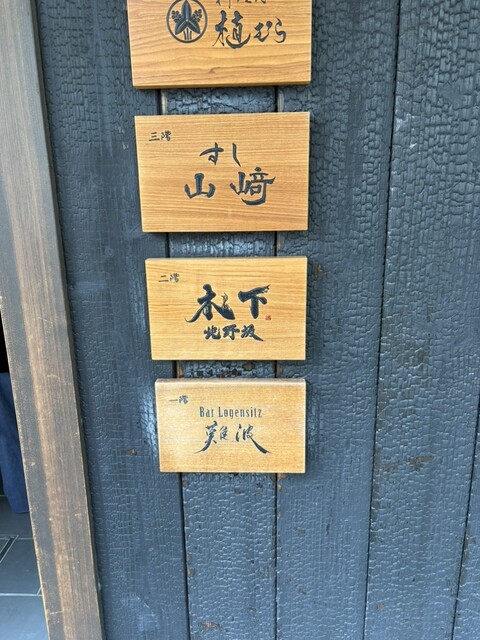 植むら
三階
すし
山﨑
二階
木下
北野坂
一階
Bar Logensitz
難波